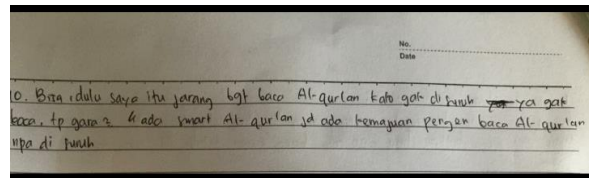 No.
Date
10. Bisa, dulu saya itu jarang bgt baca Al-qur'an kalo gak di suruh ya gak
baca, tp gara2 ada smart Al-qur'an jd ada kemajuan pengen baca Al-qur'an
npa di suruh